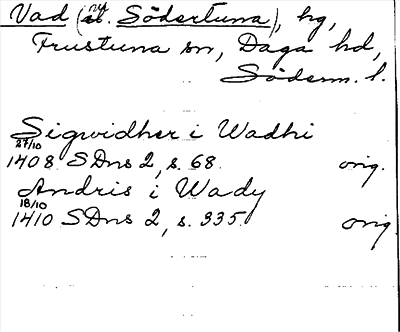 Vad (nu Södertuna), hg,
Frustuna sn, Daga hd,
Söderm. l.
Sigwidher i Wadhi
27/10
1408 SDns 2, s. 68. orig.
Andris i Wady
18/10
1410 SDns 2, s. 335. orig.